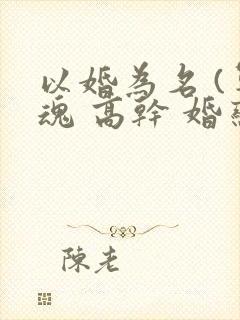 以婚為名(
魂 高幹 婚
陳老